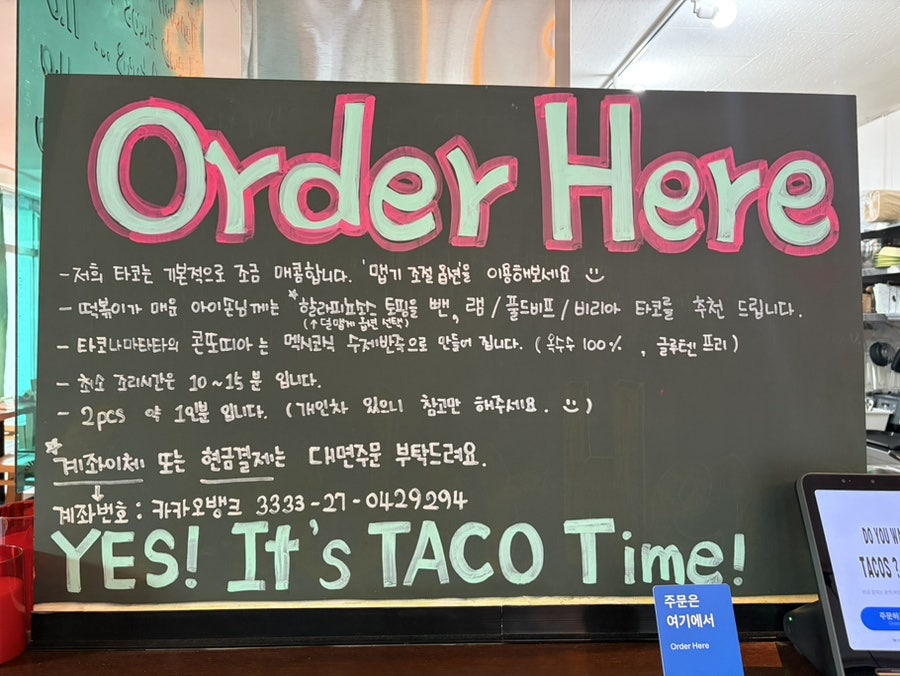 Order Here
- 저희 타코는 기본적으로 조금 매콤합니다. '맵기 조절 옵션'을 이용해보세요
- 떡볶이가 매운 아이손님께는 *할라피뇨소스 토핑을 뺀, 램 / 풀드비프 / 비리아 타코를 추천 드립니다.
(↑덜맵게 옵션 선택)
- 타코나마타타의 콘또띠아는 멕시코식 수제반죽으로 만들어 집니다. ( 옥수수 100% , 글루텐 프리 )
- 최소 조리시간은 10~15분 입니다.
- 2pcs 약 1인분 입니다. (개인차 있으니 참고만 해주세요. )
*계좌이체 또는 현금결제는 대면주문 부탁드려요.
계좌번호 : 카카오뱅크 3333-27-0429294
YES! It's TACO Time!
주문은
여기에서
Order Here
DO YOU
TACOS ?